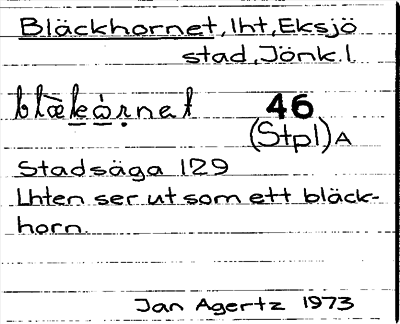 Bläckhornet, lht, Eksjö
stad, Jönk. l
blækòrnet 46
(Stpl) A
Stadsäga 129
Lhten ser ut som ett bläck-
horn.
Jan Agertz 1973